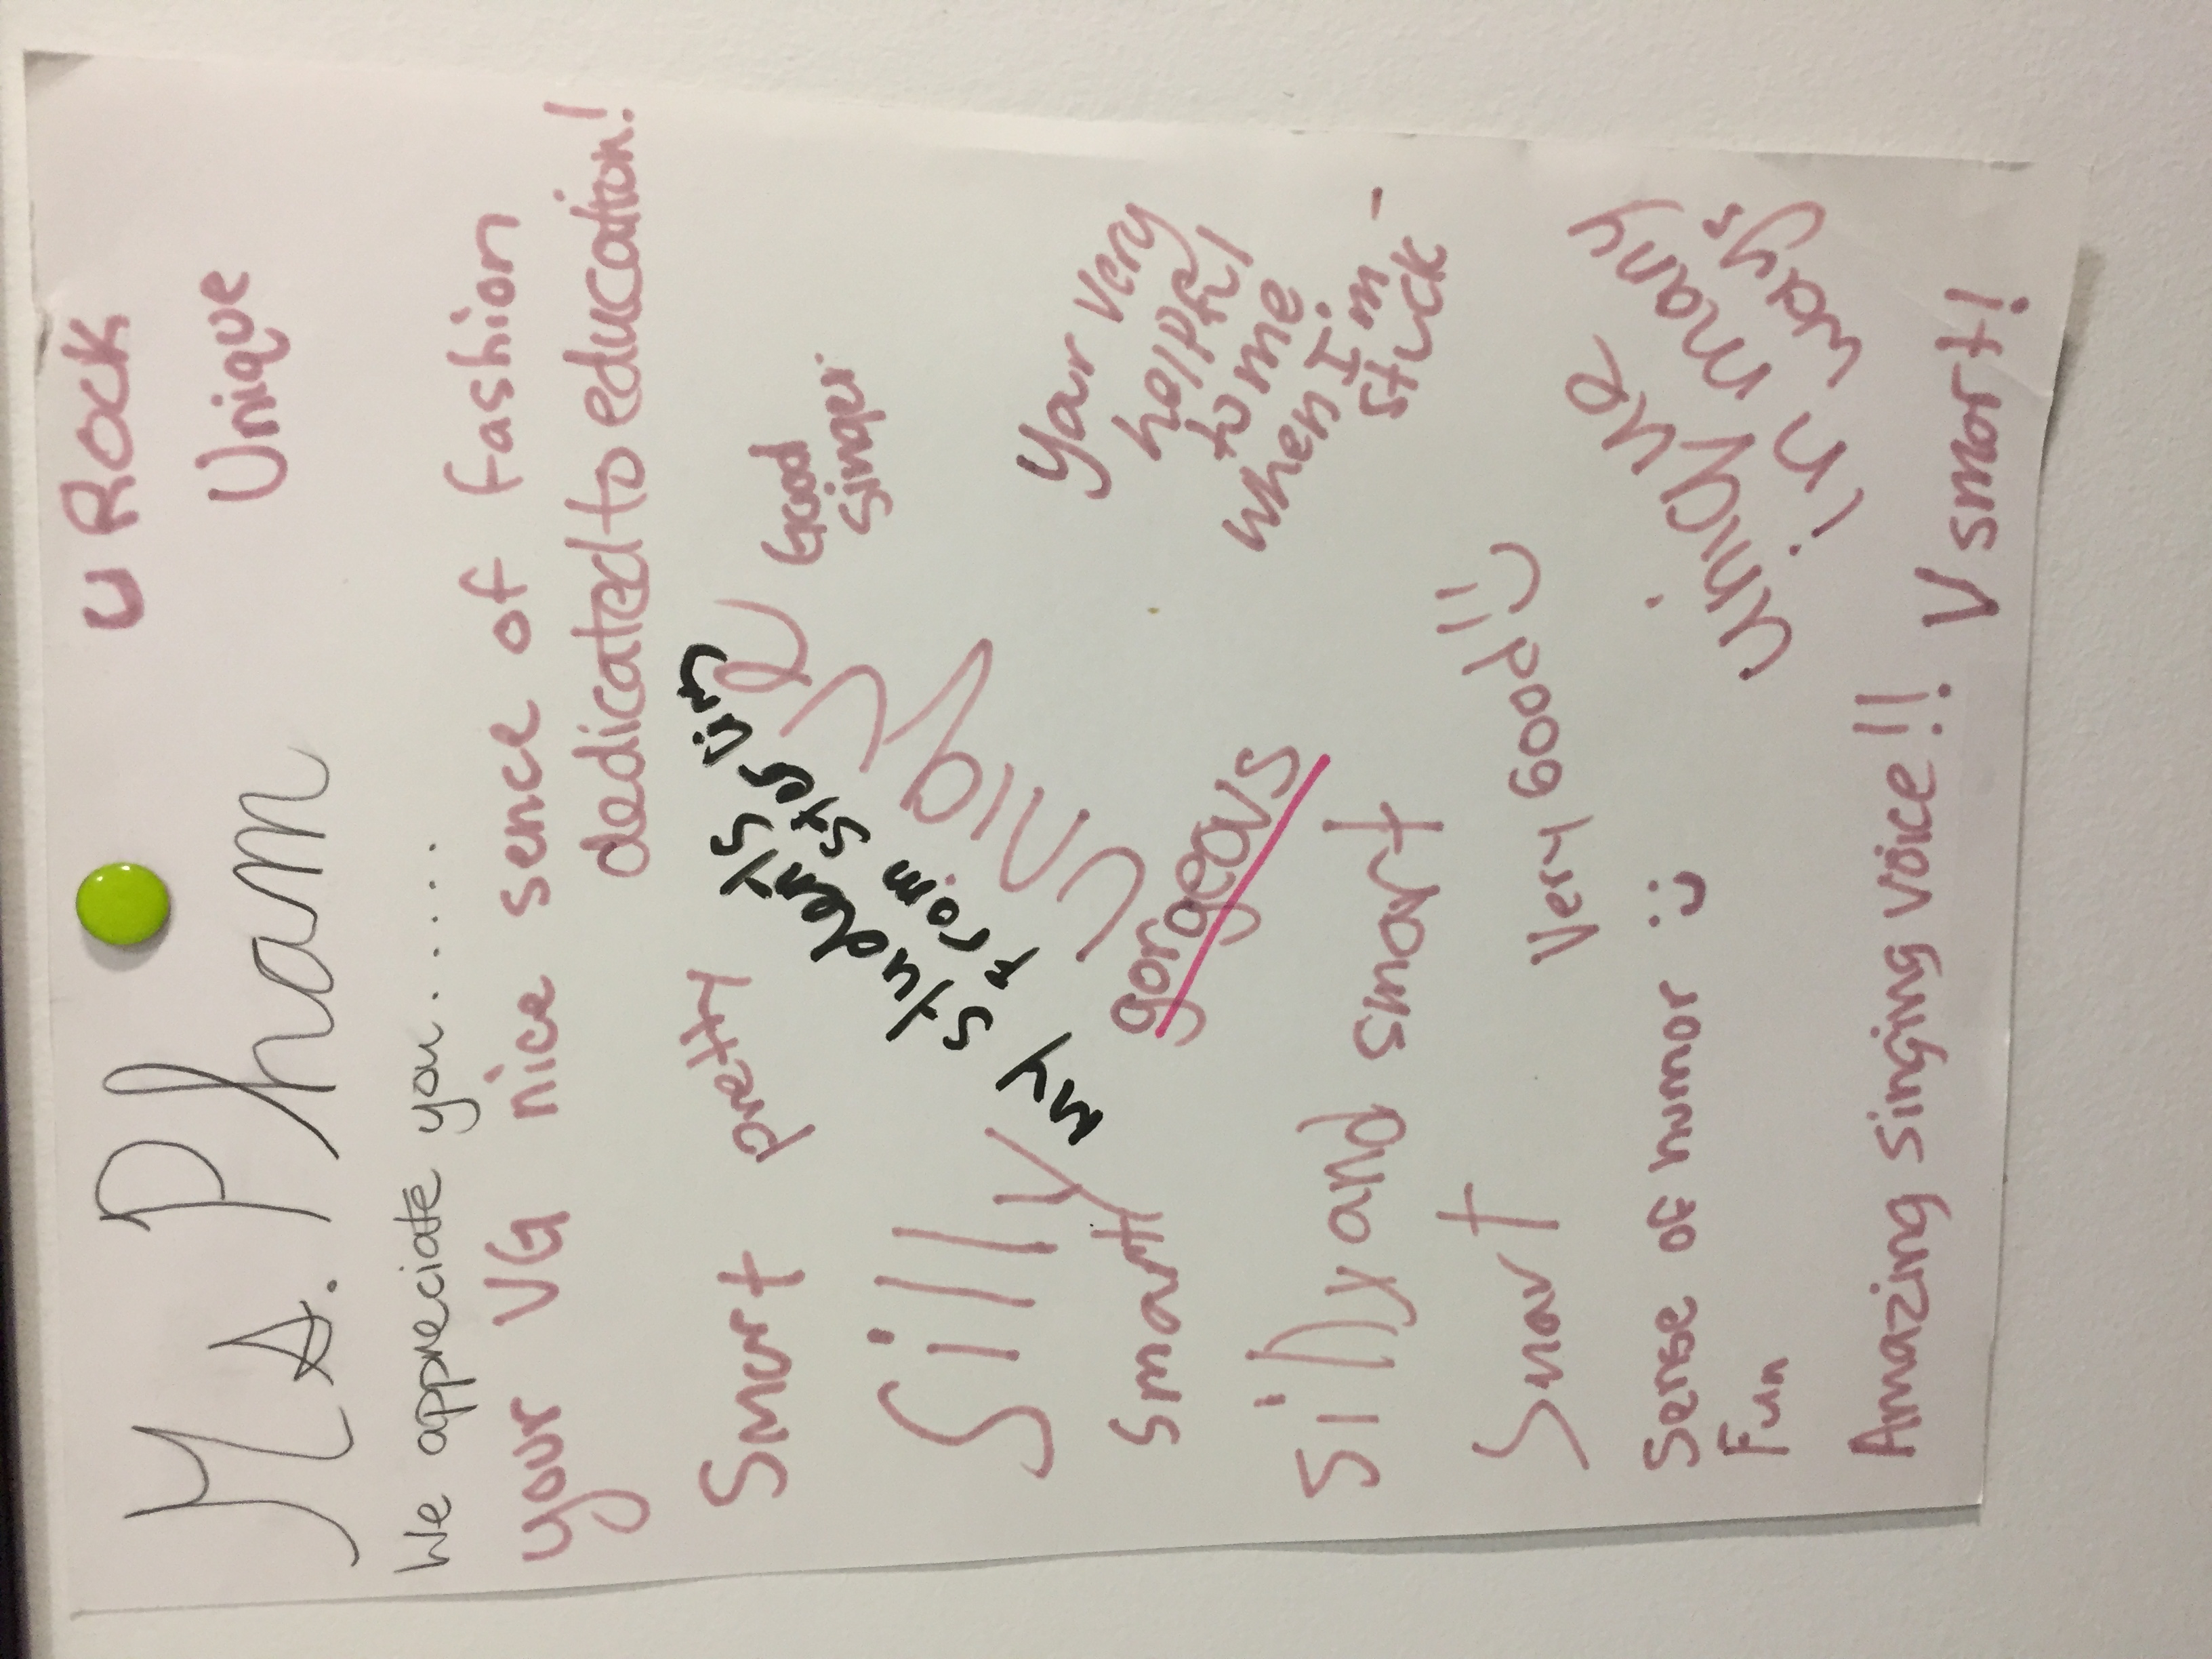 U ROCK
Ms. Pham
Unique
We appreciate you......
your VG nice sence of fashion
dedicated to education!
Smart
pretty
my students
from sterlin
Unique
Good
singer.
Silly
Smart
gorgeous
your very
helpful
to me
when I'm
stuck -
Silly and smart
Smart
very Good!! :)
unique
in many
ways
Sense of humor :)
Fun
Amazing singing voice!!
V smart!